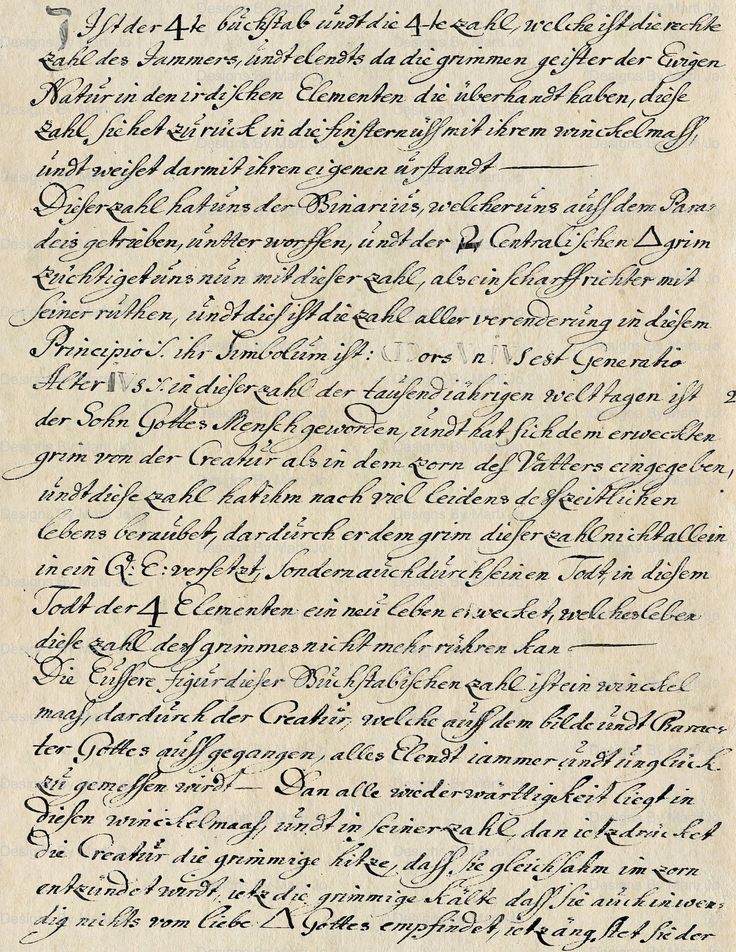 ꓶ Ist der 4te buchstab undt die 4te zahl, welche ist die rechte
zahl des Jammers, undt elendts da die grimmen geister der Ewigen
Natur in den irdischen Elementen die überhandt haben, diese
zahl siehet zurück in die finsternüss mit ihrem winckelmass,
undt weiset darmit ihren eigenen urstandt ———
Dieser zahl hat uns der Binarius, welcher uns auss dem Para=
deis getrieben, untter worffen, undt der 2 Centralischen △ grim
züchtiget uns nun mit dieser zahl, als ein scharffrichter mit
seiner ruthen, undt dies ist die zahl aller verenderung in diesem
Principio :/. ihr Simbolum ist: Mors VnIVs est Generatio
AlterIVs :/. in dieser zahl der tausendjährigen welttagen ist 2
der Sohn Gottes Mensch geworden, undt hat sich dem erweckten
grim von der Creatur als in dem zorn des Vatters eingegeben,
undt diese zahl hat ihm nach viel leidens dess zeitlichen
lebens beraubet, dardurch er dem grim dieser zahl nicht allein
in ein Q: E: versetzt, sondern auch durch seinen Todt, in diesem
Todt der 4 Elementen ein neu leben erwecket, welches leben
diese zahl dess grimmes nicht mehr rühren kan ———
Die Eussere figur dieser Buchstabischen zahl ist ein winckel
maas, dardurch der Creatur, welche auss dem bilde undt Charac=
ter Gottes aussgegangen, alles Elendt iammer undt unglück
zu gemessen wirdt — Dan alle wiederwärttigkeit liegt in
diesen winckelmaas, undt in seiner zahl, dan ietz drücket
die Creatur die grimmige hitze, dass sie gleichsahm im zorn
entzündet wirdt, ietz die grimmige kälte dass sie auch inwen=
dig nichts vom liebe △ Gottes empfindet, ietz ängstet sie der